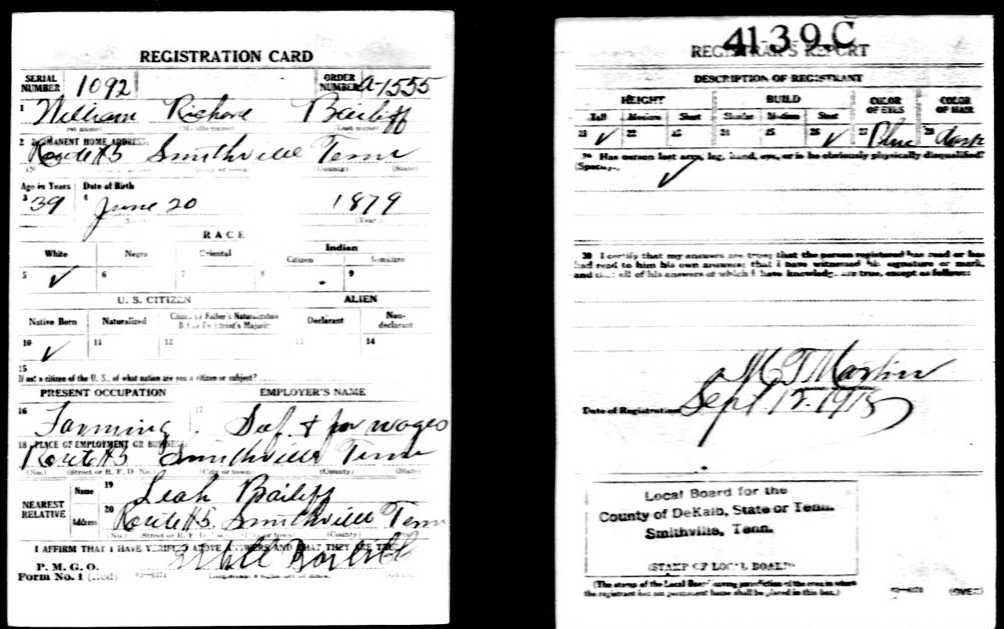 REGISTRATION CARD
SERIAL NUMBER 1092 ORDER NUMBER A-1555
1 William Bailiff
2 PERMANENT HOME ADDRESS:
Route #5 Smithville Tenn
Age in Years Date of Birth
3 39 4 June 20 1879
RACE
White Negro Oriental Indian
Citizen
5 ✓ 6 7 8 9
U. S. CITIZEN ALIEN
Native Born Naturalized Citizen by Father's Naturalization Declarant Non-declarant
10 ✓ 11 12 13 14
15
If not a citizen of the U. S., of what nation are you a citizen or subject?
PRESENT OCCUPATION EMPLOYER'S NAME
16 Farming 17 Self & for wages
18 PLACE OF EMPLOYMENT OR BUSINESS
Route #5 Smithville Tenn
(No.) (Street or R. F. D. No.) (City or town) (County) (State)
NEAREST RELATIVE Name 19 Leah Bailiff
Address 20 Route #5. Smithville Tenn
(No.) (Street or R. F. D. No.) (County)
I AFFIRM THAT I HAVE VERIFIED ABOVE ANSWERS AND THAT THEY ARE TRUE
P. M. G. O.
Form No. 1 (Red)
41-3 9 C
REGISTRAR'S REPORT
DESCRIPTION OF REGISTRANT
HEIGHT BUILD COLOR OF EYES COLOR OF HAIR
Tall Medium Short Slender Medium Stout
21 ✓ 22 23 24 25 26 ✓ 27 Blue 28 Dark
29 Has person lost arm, leg, hand, eye, or is he obviously physically disqualified?
(Specify.)
✓
30 I certify that my answers are true; that the person registered has read or has
had read to him his own answers; that I have witnessed his signature or mark,
and that all of his answers of which I have knowledge are true, except as follows:
M T Martin
Date of Registration Sept 12. 1918
Local Board for the
County of DeKalb, State of Tenn.
Smithville, Tenn.
(STAMP OF LOCAL BOARD)
(The stamp of the Local Board having jurisdiction of the area in which
the registrant has his permanent home shall be placed in this box.)
(OVER)